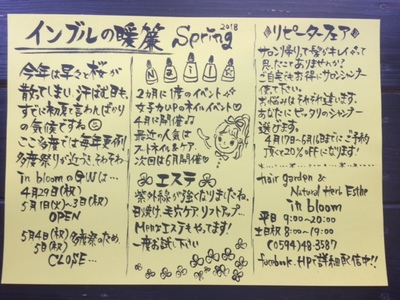 インブルの暖簾 Spring 2018
今年は早々と桜が
散ってしまい、汗ばむ日も
すでに初夏と言わんばかり
の気候ですね
ここ多度では毎年恒例
多度祭りが近づき、そわそわ
in bloomのGWは…
4月29日(祝)
5月1日(火)~3日(祝)
OPEN
5月4日(祝)多度祭のため
5日(祝)
CLOSE…
Nail
2ヵ月に1度のイベント
女子力UPのネイルイベント♡
4月に開催
最近の人気は
フットネイル&ケア
次回は6月開催
エステ
紫外線が強くなりましたね。
日焼け、毛穴ケア、リフトアップ…
Men'sエステもやってます!
一度お試し下さい
リピーターフェア
サロン帰りって髪がキレイって
思ったことありませんか?
ご自宅でもお得にサロンシャンプー
使って下さい。
お悩みはそれぞれ違います。
あなたにピッタリのシャンプー
選びます。
4月17日~6月16日までにご予約
頂くと20%offになります!
hair garden &
Natural Herb Esthe
in bloom
平日 9:00~20:00
土日祝 8:00~19:00
☎(0594)48-3587
facebook、HPで詳細配信中!!